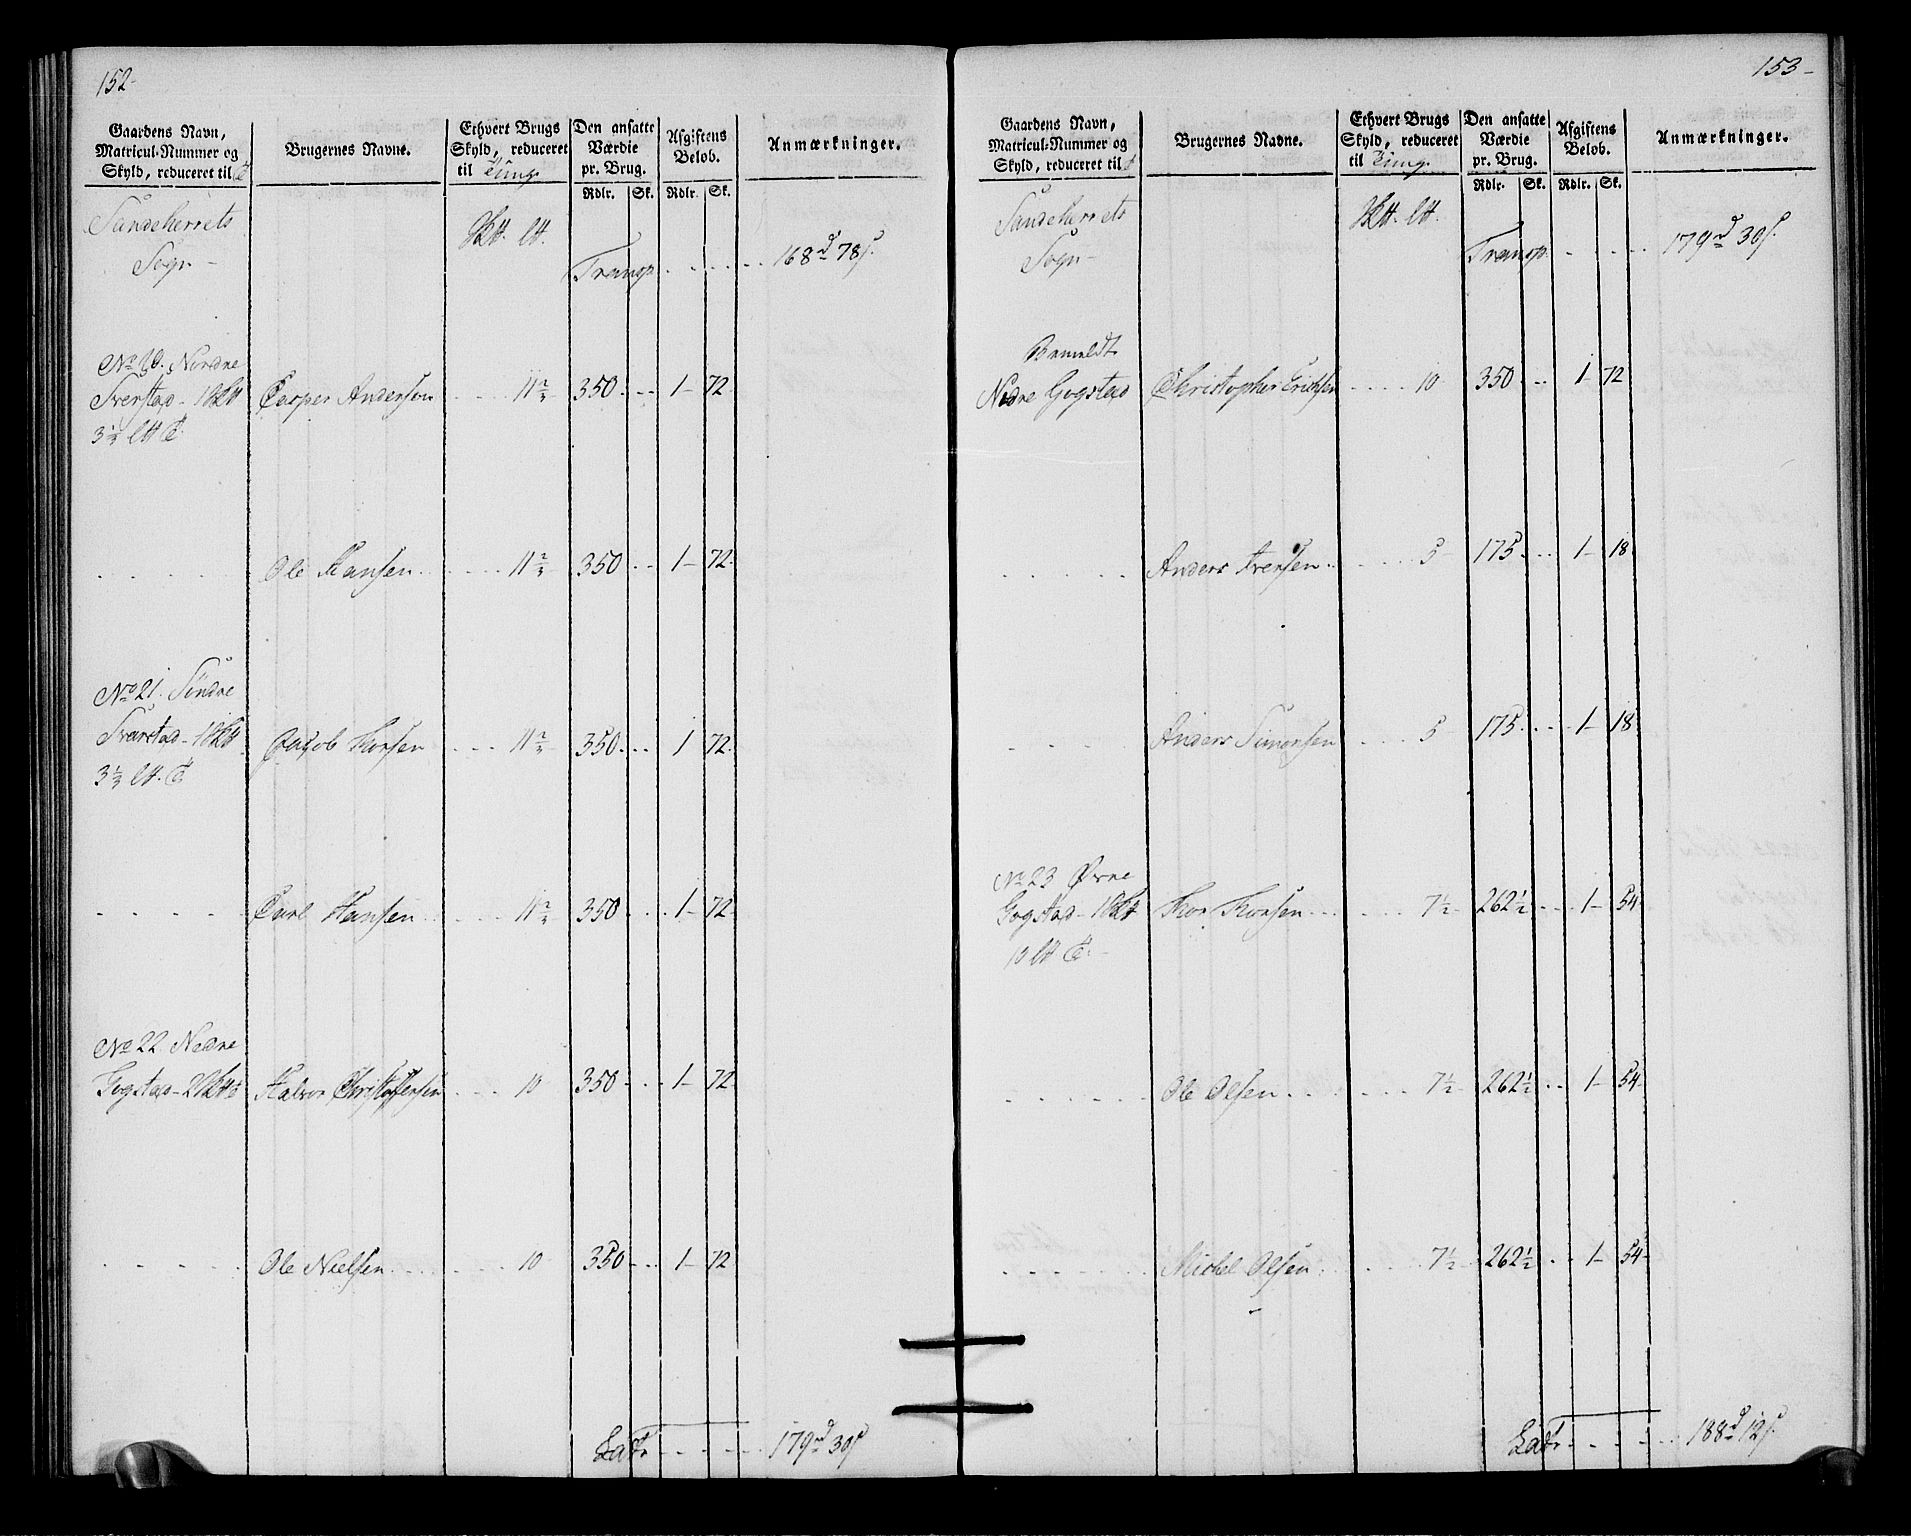 152-
Gaardens Navn,
Matricul-Nummer og
Skyld, reduceret til
Brugernes Navne.
Ethvert Brugs
Skyld, reduceret
til Tunge
Den ansatte
Værdie
pr. Brug.
Rdlr. Sk.
Afgiftens
Beløb.
Rdlr. Sk.
Anmærkninger.
Sandeherrets
Sogn -
Transp. 168 78
No 20. Nordre
Sverstad - 1
3 1/3
Casper Andersen 11 2/3 350 1 - 72
Ole Hansen 11 2/3 350 1 - 72
No 21. Söndre
Sverstad - 1
3 1/3
Jacob Thorsen 11 2/3 350 1 72
Carl Hansen 11 2/3 350 1 - 72
No 22. Nedre
Gogstad - 2
Halvor Christoffersen 10 350 1 - 72
Ole Nielsen 10 350 1 - 72
Latr 179 30
153-
Gaardens Navn,
Matricul-Nummer og
Skyld, reduceret til
Brugernes Navne.
Ethvert Brugs
Skyld, reduceret
til Tunge
Den ansatte
Værdie
pr. Brug.
Rdlr. Sk.
Afgiftens
Beløb.
Rdlr. Sk.
Anmærkninger.
Sandeherrets
Sogn -
Transp. 179 30
Bemeldt
Nedre Gogstad Christopher Erichsen 10 350 1 72
Anders Iversen 5 175 1 - 18
Anders Simonsen 5 175 1 - 18
No 23 Øvre
Gogstad - 1
10
Thor Thorsen 7 1/2 262 1/2 1 - 54
Ole Olsen 7 1/2 262 1/2 1 - 54
Michel Olsen 7 1/2 262 1/2 1 - 54
Latr 188 12